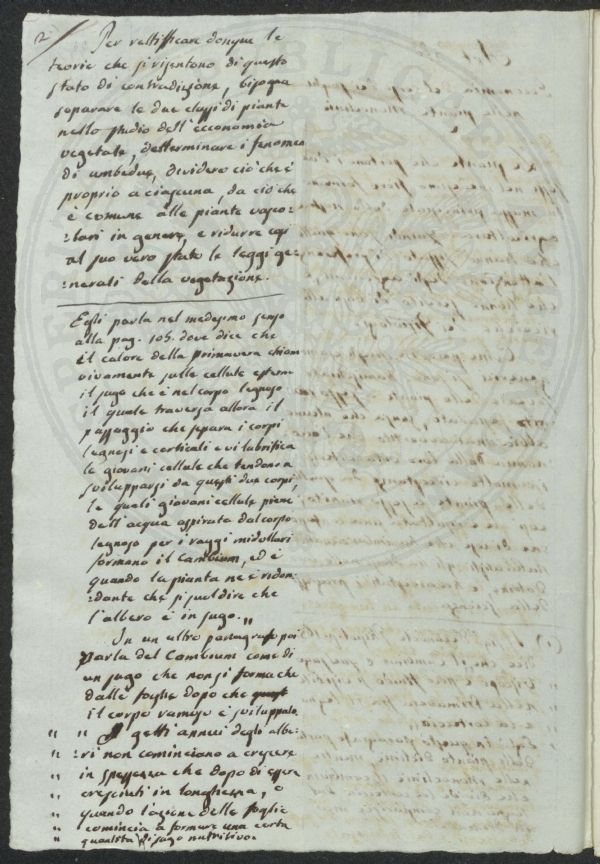 2)
Per rettifficare donque le
teorie che si risentono di questo
stato di contradizione, bisogna
separare le due classi di piante
nello studio dell'economia
vegetale, determinare i fenomeni
di ambedue, dividere ciò che è
proprio a ciascuna, da ciò che
è comune alle piante vasco-
:lari in genere, e ridurre così
al suo vero stato le leggi ge-
:nerali della vegetazione.
Egli parla nel medesimo senso
alla pag. 105. dove dice che
il calore della primavera
vivamente sulle cellule esterne
il sugo che è nel corpo legnoso
il quale traversa allora il
passaggio che separa i corpi
legnosi e corticali e vi lubrifica
le giovani cellule che tendono a
svilupparsi da questi due corpi,
le quali giovani cellule piene
dell'acqua aspirata dal corpo
legnoso per i raggi midullari
formano il Cambium, ed è
quando la pianta ne è ridon-
:dante che si suol dire che
l'albero è in sugo.„
In un altro paragrafo poi
parla del Cambium come di
un sugo che non si forma che
dalle foglie dopo che
il corpo ramoso è sviluppato.
„ „ I getti annui degli albe-
„ :ri non cominciano a crescere
„ in spessezza che dopo di essere
„ cresciuti in longhezza, o
„ quando l'azione delle foglie
„ comincia a formare una certa
„ quantità di sugo nutritivo.